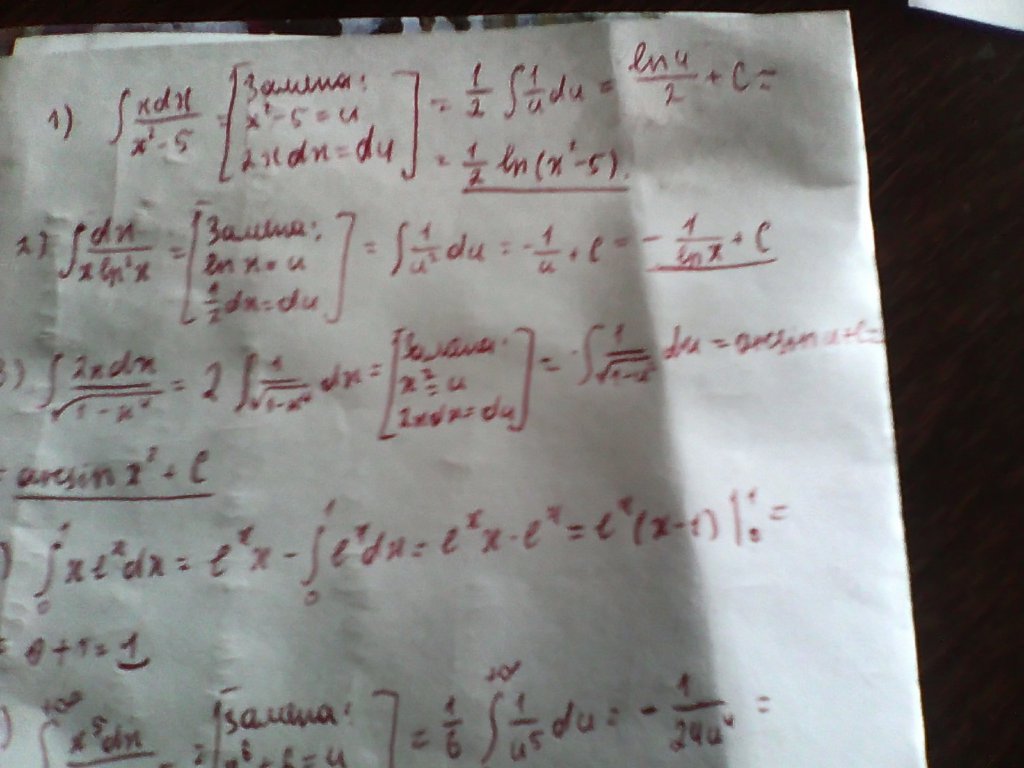 1) ∫ xdx / x²-5 = [Замена: x²-5=u 2xdx=du] = 1/2 ∫ 1/u du = ln u / 2 + C =
= 1/2 ln(x²-5).
2) ∫ dx / x ln²x = [Замена: ln x = u 1/x dx = du] = ∫ 1/u² du = -1/u + C = -1/ln x + C
3) ∫ 2xdx / √1-x⁴ = 2 ∫ 1/√1-x⁴ dx = [Замена: x² = u 2xdx = du] = ∫ 1/√1-u² du = arcsin u + C =
= arcsin x² + C
) ∫₀¹ xeˣdx = eˣx - ∫₀¹ eˣdx = eˣx - eˣ = eˣ(x-1) |₀¹ =
= 0+1 = 1
) ∫ ^+∞ x⁵dx = [Замена: = u] = 1/6 ∫ ^+∞ 1/u⁵ du = - 1/24u⁴ =